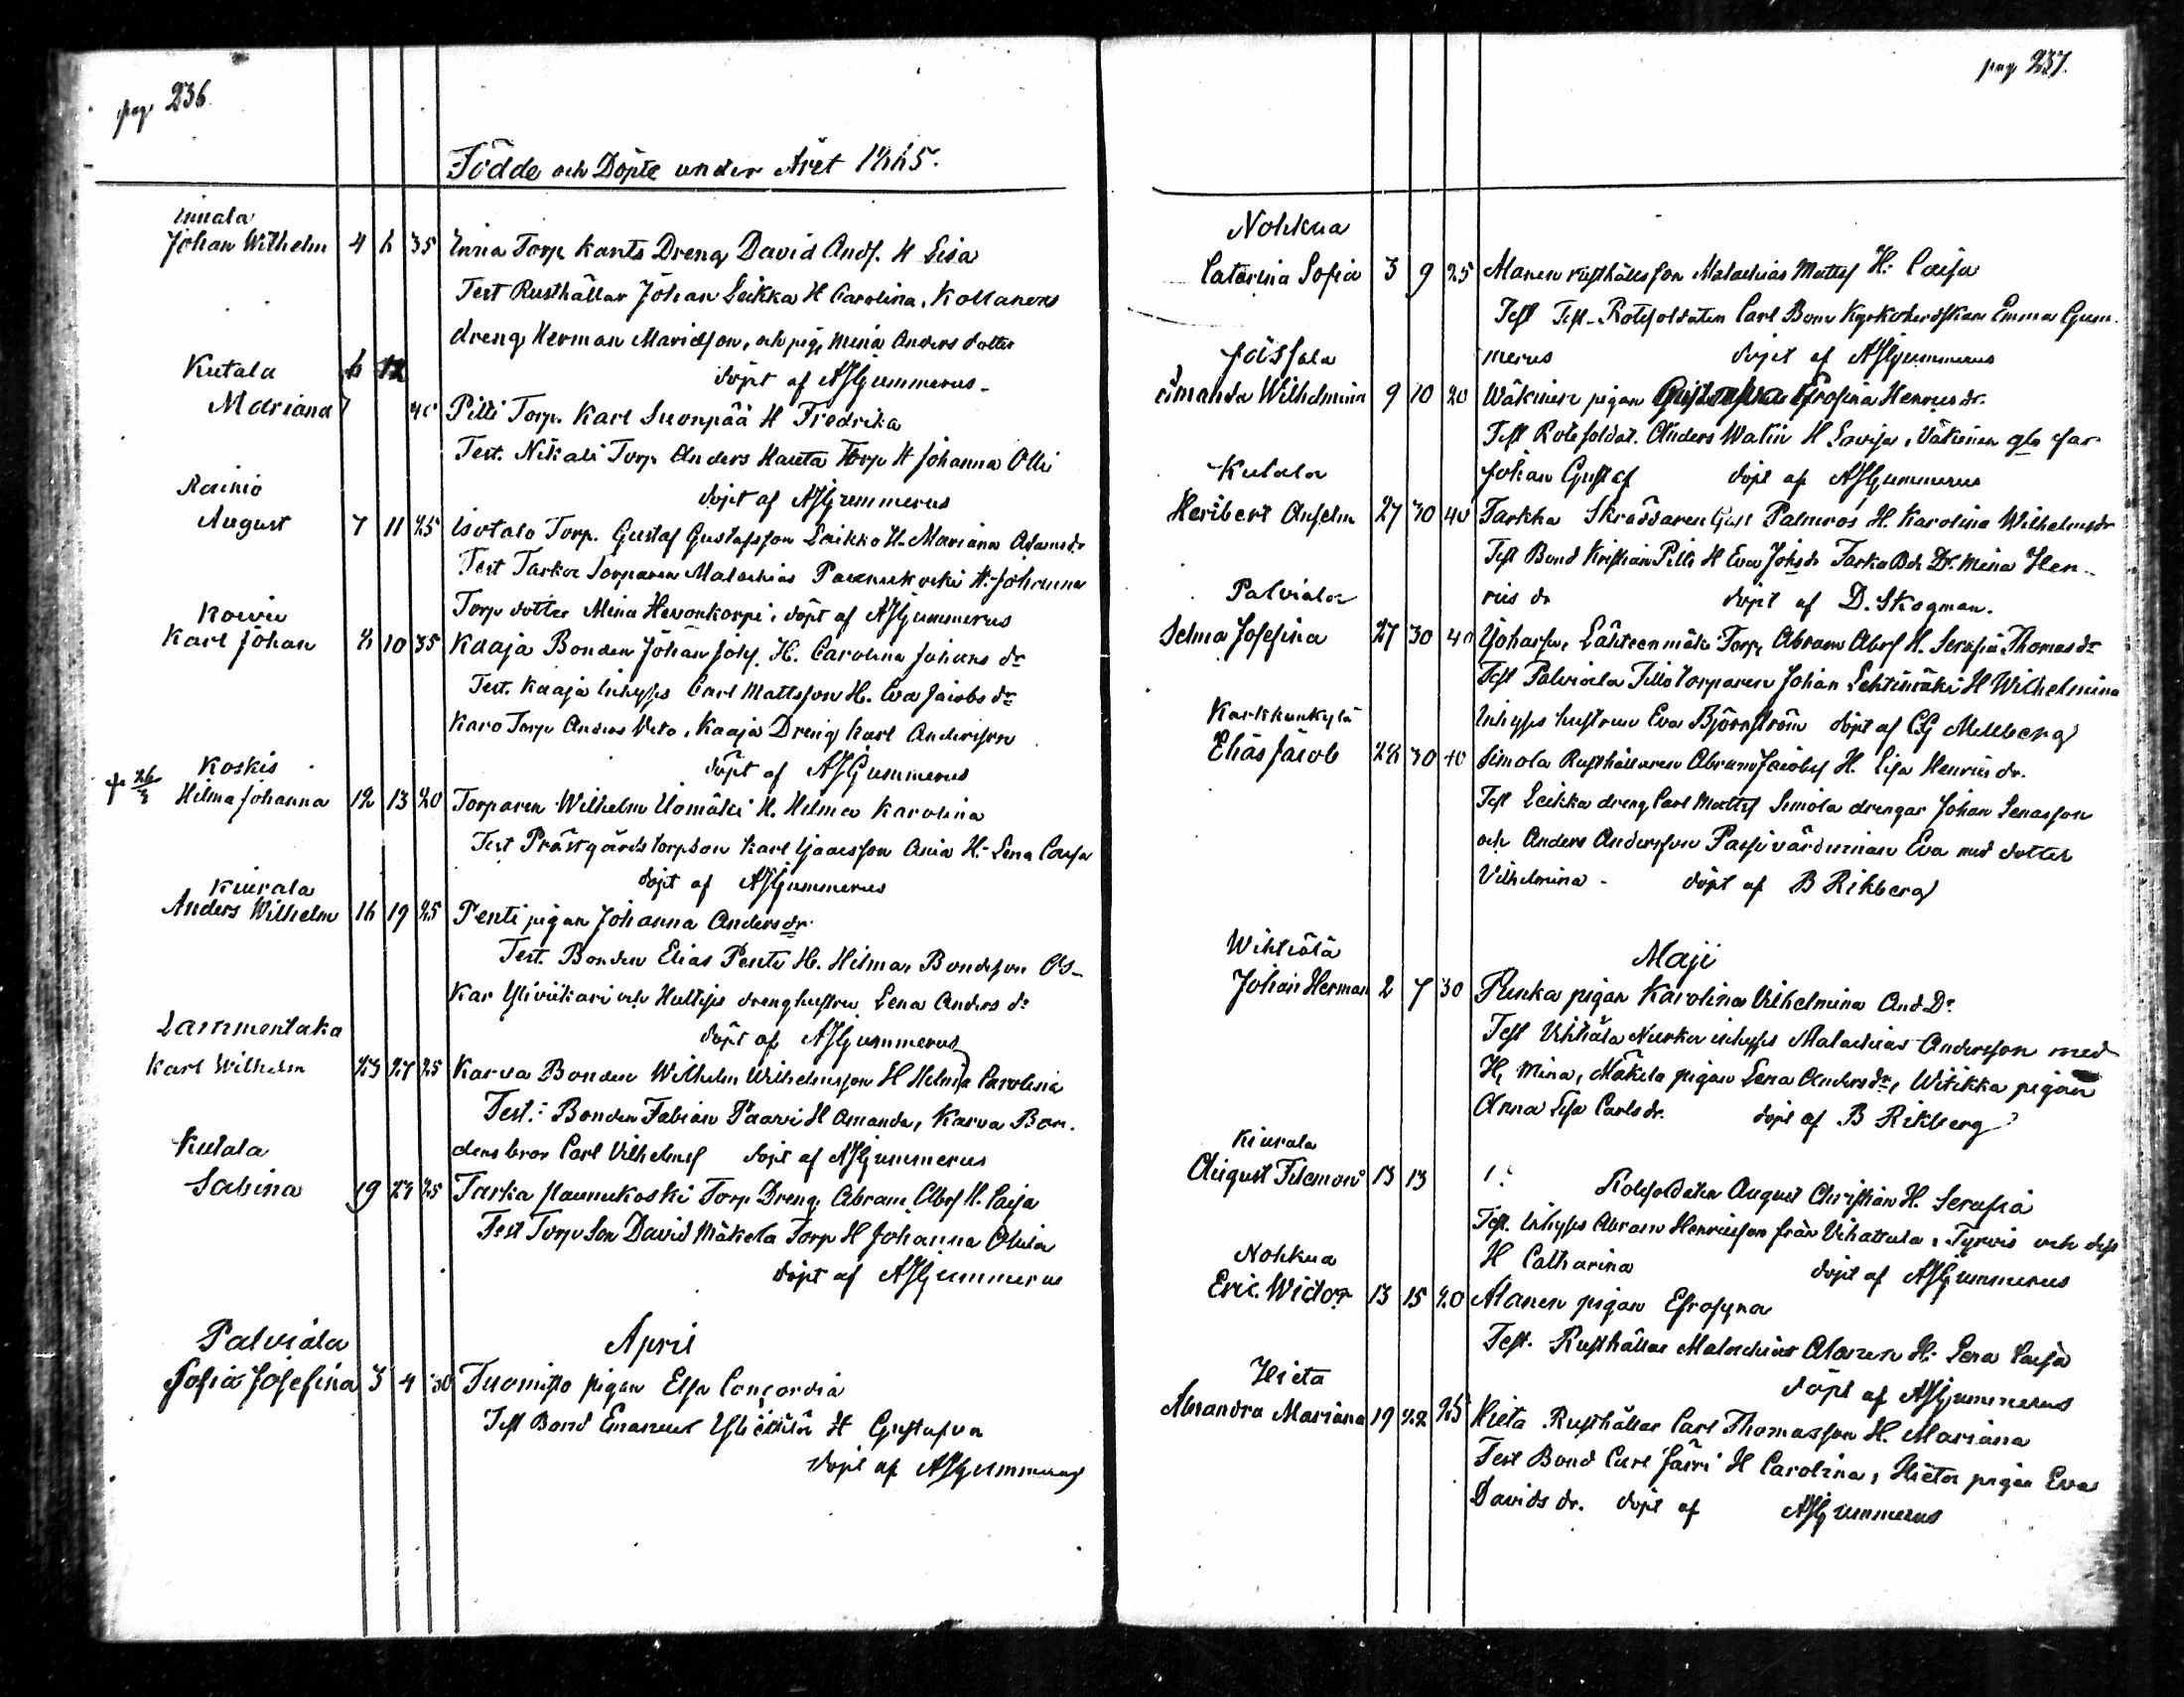 pag 236.
Födde och Döpte under Året 1885.
Innala
Johan Wilhelm 4 8 35 Enna Torp Karls Dreng David Andf. H Lisa
Test Rusthållar Johan Leikka H Carolina, Kollanens
dreng Herman Maridson, och pig. Mina Anders dotter
Kutala 8 12 döpt af AJGummerus
Mariana 7 40 Pilli Torp. Karl Suonpää H Fredrika
Test. Nikali Torp Anders Hauta Torp H Johanna Olli
Rainio döpt af AJGummerus
August 7 11 25 Isotalo Torp. Gustaf Gustafsson Laikko H. Mariana Adamsdr
Test Tarka Torparen Malachias Paunukoski H. Johanna
Torp dotter Mina Hevonkorpi, döpt af AJGummerus
Koivu
Karl Johan 8 10 35 Kaaja Bonden Johan Johs. H. Carolina Johans dr
Test. Kaaja Inhyses Carl Mattsson H. Eva Jacobs dr
Karo Torp Anders Veto, Kaaja Dreng Karl Andersson
Koskis döpt af AJGummerus
† 26/3 Hilma Johanna 12 13 20 Torparen Wilhelm Uomäki H. Hilma Karolina
Test Prästgårds torpson Karl Isaacsson Ania H. Lena Caisa
Kiurala döpt af AJGummerus
Anders Wilhelm 18 19 25 Penti pigan Johanna Andersdr.
Test. Bonden Elias Penti H. Hilma, Bondeson Os-
kar Yliviikari och Hultips drenghustru Lena Anders dr
Lammentaka döpt af AJGummerus
Karl Wilhelm 23 27 25 Karva Bonden Wilhelm Wilhelmsson H Hilma Carolina
Test.: Bonden Fabian Paavi H Amanda, Karva Bon-
Kutala dens bror Carl Vilhelmsf döpt af AJGummerus
Sabina 19 29 25 Tarka Paunukoski Torp Dreng. Abram Absf H. Caisa
Test Torp Son David Mäkela Torp H Johanna Olula
döpt af AJGummerus
Palviala April
Sofia Josefina 3 4 30 Tuomisto pigan Elsa Concordia
Test Bond Emanuel H Gustafva
döpt af AJGummerus
pag 237.
Nohkua
Catarina Sofia 3 9 25 Alanen rusthålls son Malachias Mattsf H. Caisa
Test Test. Rotesoldaten Carl Bom Kyrkoherdskan Emma Gum-
Jässala merus döpt af AJGummerus
Amanda Wilhelmina 9 10 20 Wäkinen pigan Efrosina Henricsdr.
Test Rotesoldat. Anders Walin H Lovisa, Väkinen gla far
Kutala Johan Gustaf döpt af AJGummerus
Heribert Anselm 27 30 40 Tarkka Skräddaren Gust Palmros H. Karolina Wilhelmsdr
Test Bond Kristian Pilli H Eva Johsdr Tarka Bds Dr. Mina Hen-
Palviala rics dr döpt af D. Skogman.
Selma Josefina 27 30 40 Lähteenmäki Torp, Abram Absf H. Serafia Thomasdr
Test Palviala Tillo torparen Johan Lehtimäki H Wilhelmina
Karkkunkylä Inhyses hustrun Eva Björnström döpt af CG Mellberg
Elias Jacob 28 30 40 Simola Rusthållaren Abram Jacobsf H. Lisa Henrics dr.
Test Leikka dreng Carl Mattsf Simola drengar Johan Lenasson
och Anders Andersson Passi värdinnan Eva med dotter
Vilhelmina - döpt af B Rikberg
Wihtiälä Maji
Johan Herman 2 7 30 Punka pigan Karolina Vilhelmina And. Dr.
Test Vihtiälä Nuorka inhyses Malachias Andersson med
H, Mina, Mäkela pigan Lena Andersdr, Witikka pigan
Anna Lisa Carls dr. döpt af B Rikberg
Kiurala
August Filemon 13 13 Rotesoldaten August Christian H. Serafia
Test. Inhyses Abram Henricsson från Vihattula, Tyrvis och dess
Nohkua H Catharina döpt af AJGummerus
Eric Wictor 13 15 20 Alanen pigan Efrosyna
Test. Rusthållar Malachias Alanen H. Lena Caisa
Hieta döpt af AJGummerus
Alexandra Mariana 19 22 25 Hieta Rusthållar Carl Thomasson H. Mariana
Test Bond Carl Järri H Carolina, Hieta pigan Eva
Davids dr. döpt af AJGummerus